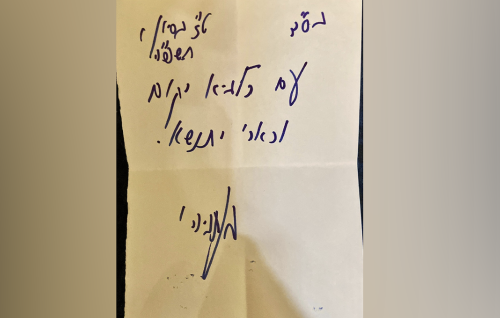 בס"ד
ט"ז בסיון
תשפ"ה
עם כלביא יקום
וכארי יתנשא.